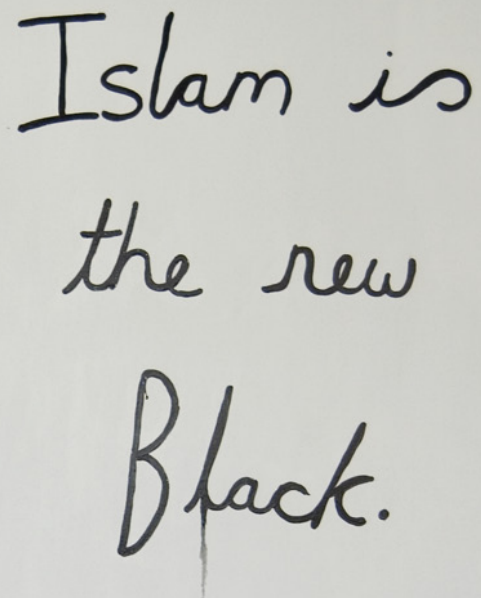 Islam is
the new
Black.